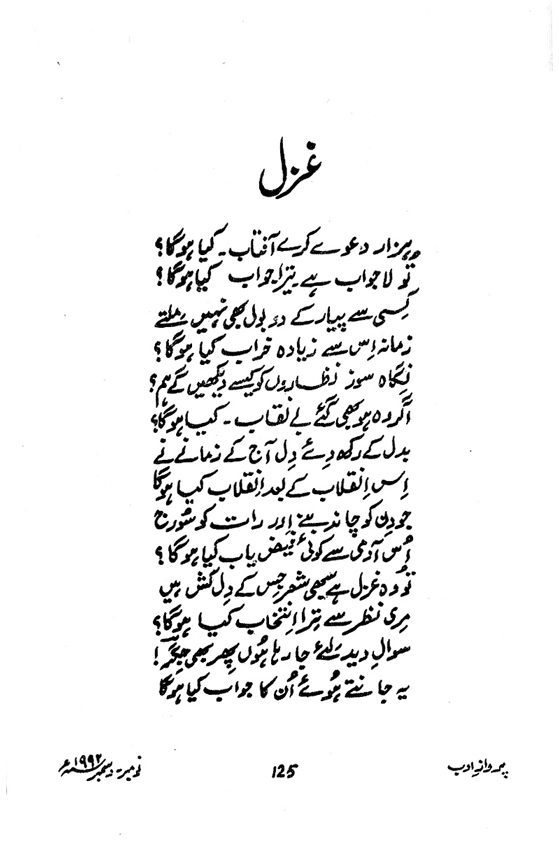 غزل
ہزار دعوے کرے آفتاب۔ کیا ہوگا؟
تو لاجواب ہے تیرا جواب کیا ہوگا؟
کِسی سے پیار کے دو بول بھی نہیں مِلتے
زمانہ اِس سے زیادہ خراب کیا ہوگا؟
نِگاہ سوز نظاروں کو کیسے دیکھیں گے ہم؟
اگر وہ ہو بھی گئے بے نقاب۔ کیا ہوگا؟
بدل کے رکھ دئے دِل آج کے زمانے نے
اِس اِنقلاب کے بعد اِنقلاب کیا ہوگا
جو دِن کو چاند بنے اور رات کو سُورج
اُس آدمی سے کوئی فیض یاب کیا ہوگا؟
تو وہ غزل ہے سبھی شعر جس کے دِل کش ہیں
مِری نظر سے تِرا اِنتخاب کیا ہوگا؟
سوالِ دید لئے جا رہا ہُوں پھر بھی جگر!
یہ جانتے ہُوئے اُن کا جواب کیا ہوگا
پروازِ ادب
125
نومبر۔ دسمبر ۱۹۹۲ء